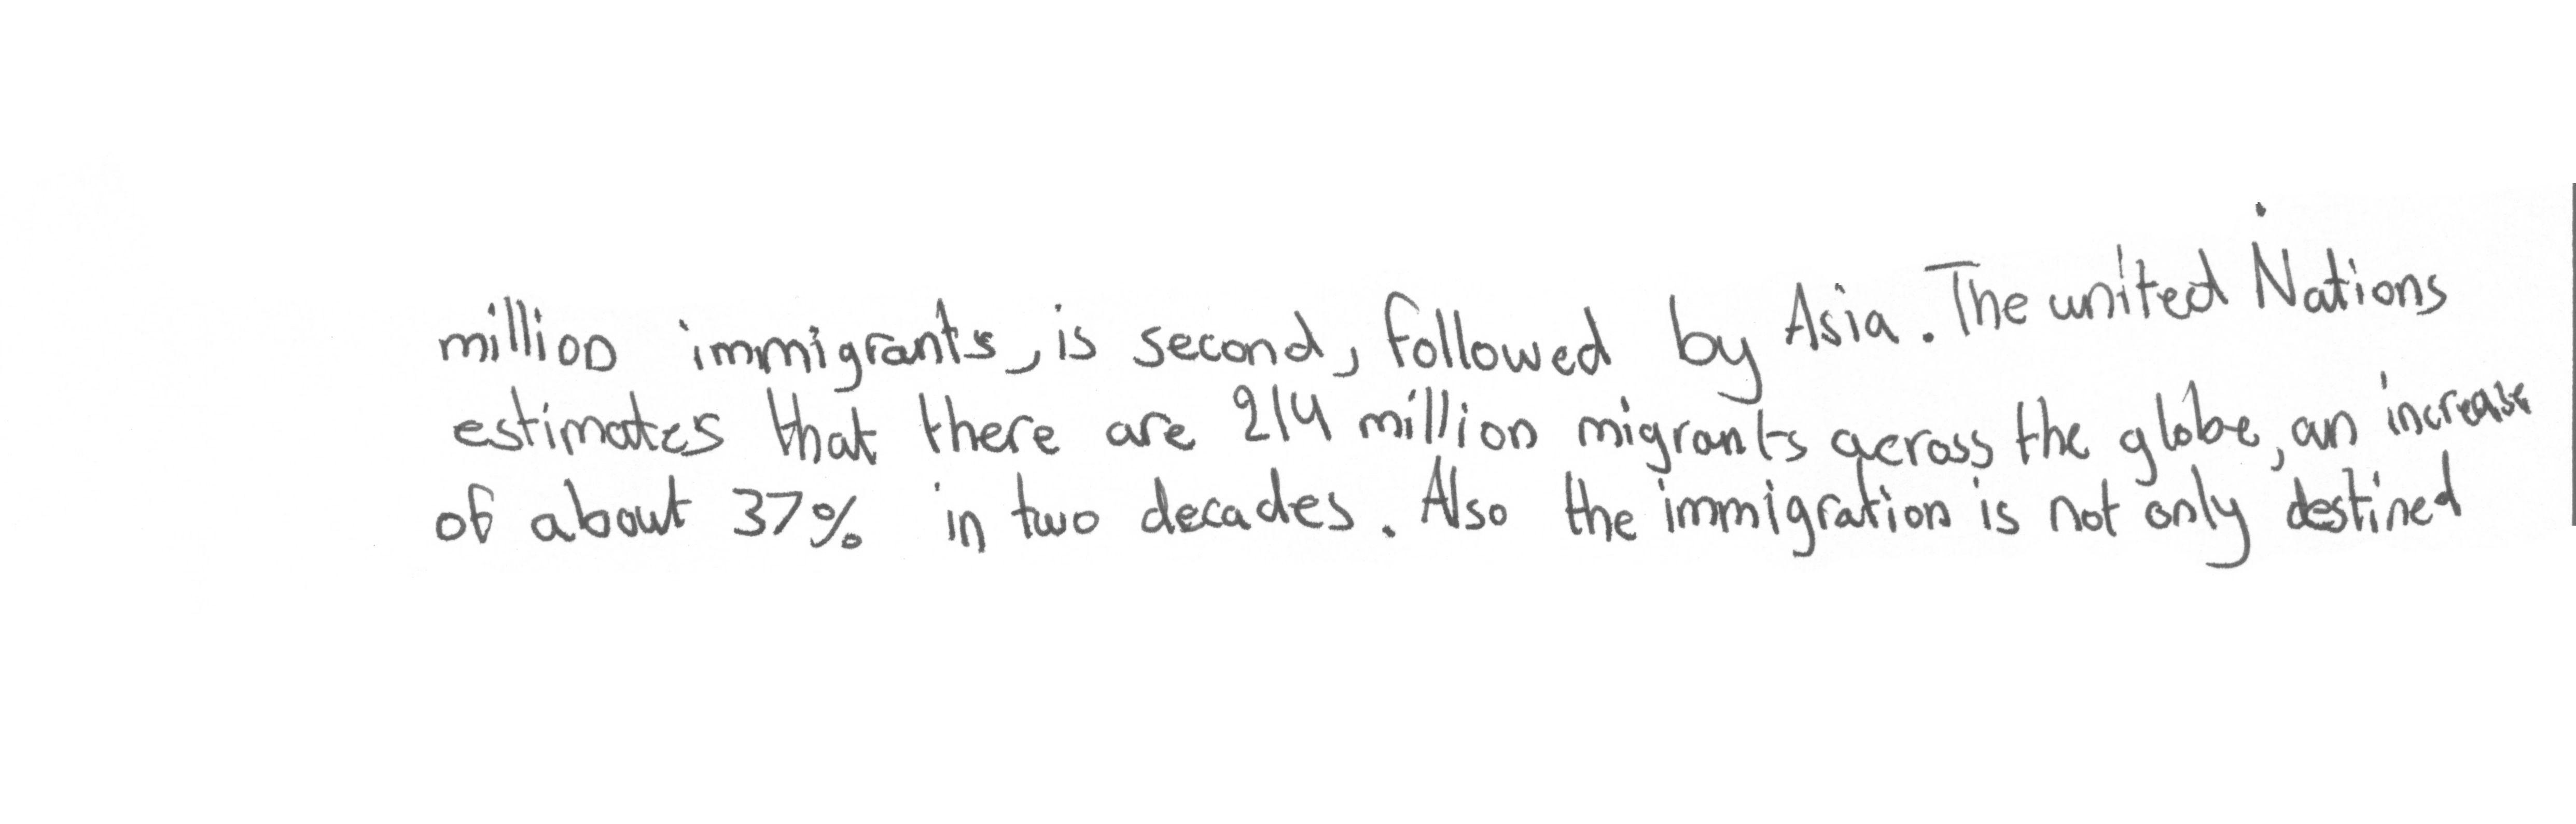 million immigrants, is second, followed by Asia. The united Nations
estimates that there are 214 million migrants across the globe, an increase
of about 37% in two decades. Also the immigration is not only destined